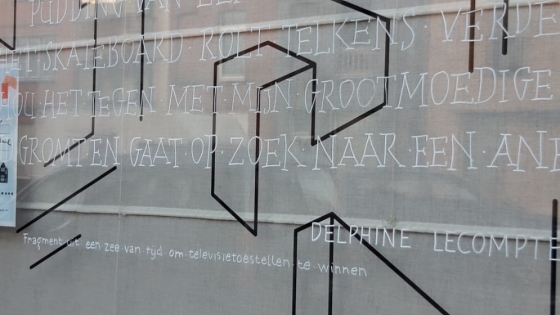 PUDDING VAN EEN
'T SKATEBOARD · ROLT TELKENS · VERDE
OU · HET · TEGEN · MET · MIJN · GROOTMOEDIGE
GROMT · EN · GAAT · OP · ZOEK · NAAR · EEN · AND
DELPHINE LECOMPTE
Fragment uit: een zee van tijd om televisietoestellen te winnen